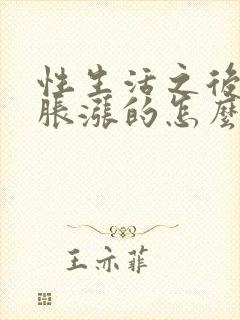 性生活之後
脹漲的怎麼
王亦菲